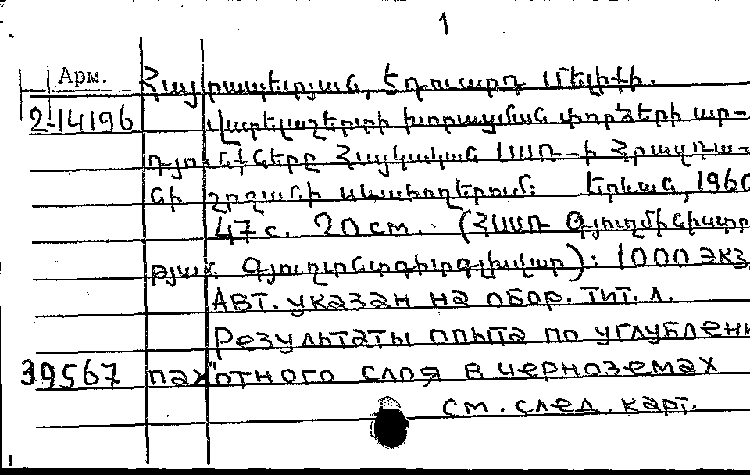 1
Арм.
Հայրապետյան, Էդուարդ Մելիքի.
2-14196
Վարելաշերտի խորացման փորձերի ար-
դյունքները Հայկական ՍՍՌ-ի Հրազդա-
նի շրջանի սևահողերում: Երևան, 1960
47 с. 20 см. (ՀՍՍՌ Գյուղմինիստր
թյան Գյուղատնտ ): 1000 экз.
Авт. указан на обор. тит. л.
Результаты опыта по углублени
39567 пахотного слоя в черноземах
см. след. карт.